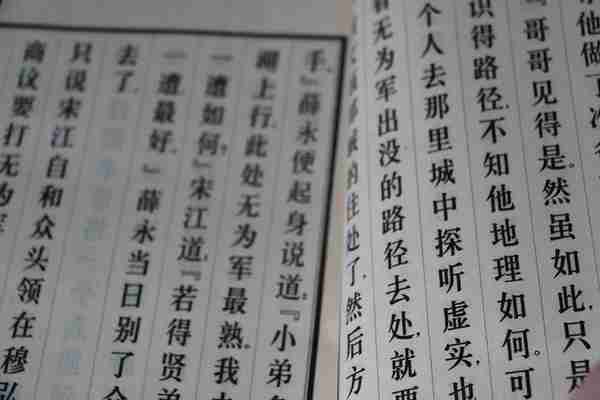 他做了冷
哥哥见得是。然虽如此,只是
识得路径,不知他地理如何。可
个人去那里城中探听虚实,也
看无为军出没的路径去处,就要
的住处了,然后方
手。』薛永便起身说道:『小弟多
湖上行,此处无为军最熟。我
一遭如何?』宋江道:『若得贤弟
一遭最好。』薛永当日别了
去了。
只说宋江自和众头领在穆弘
商议要打无为军